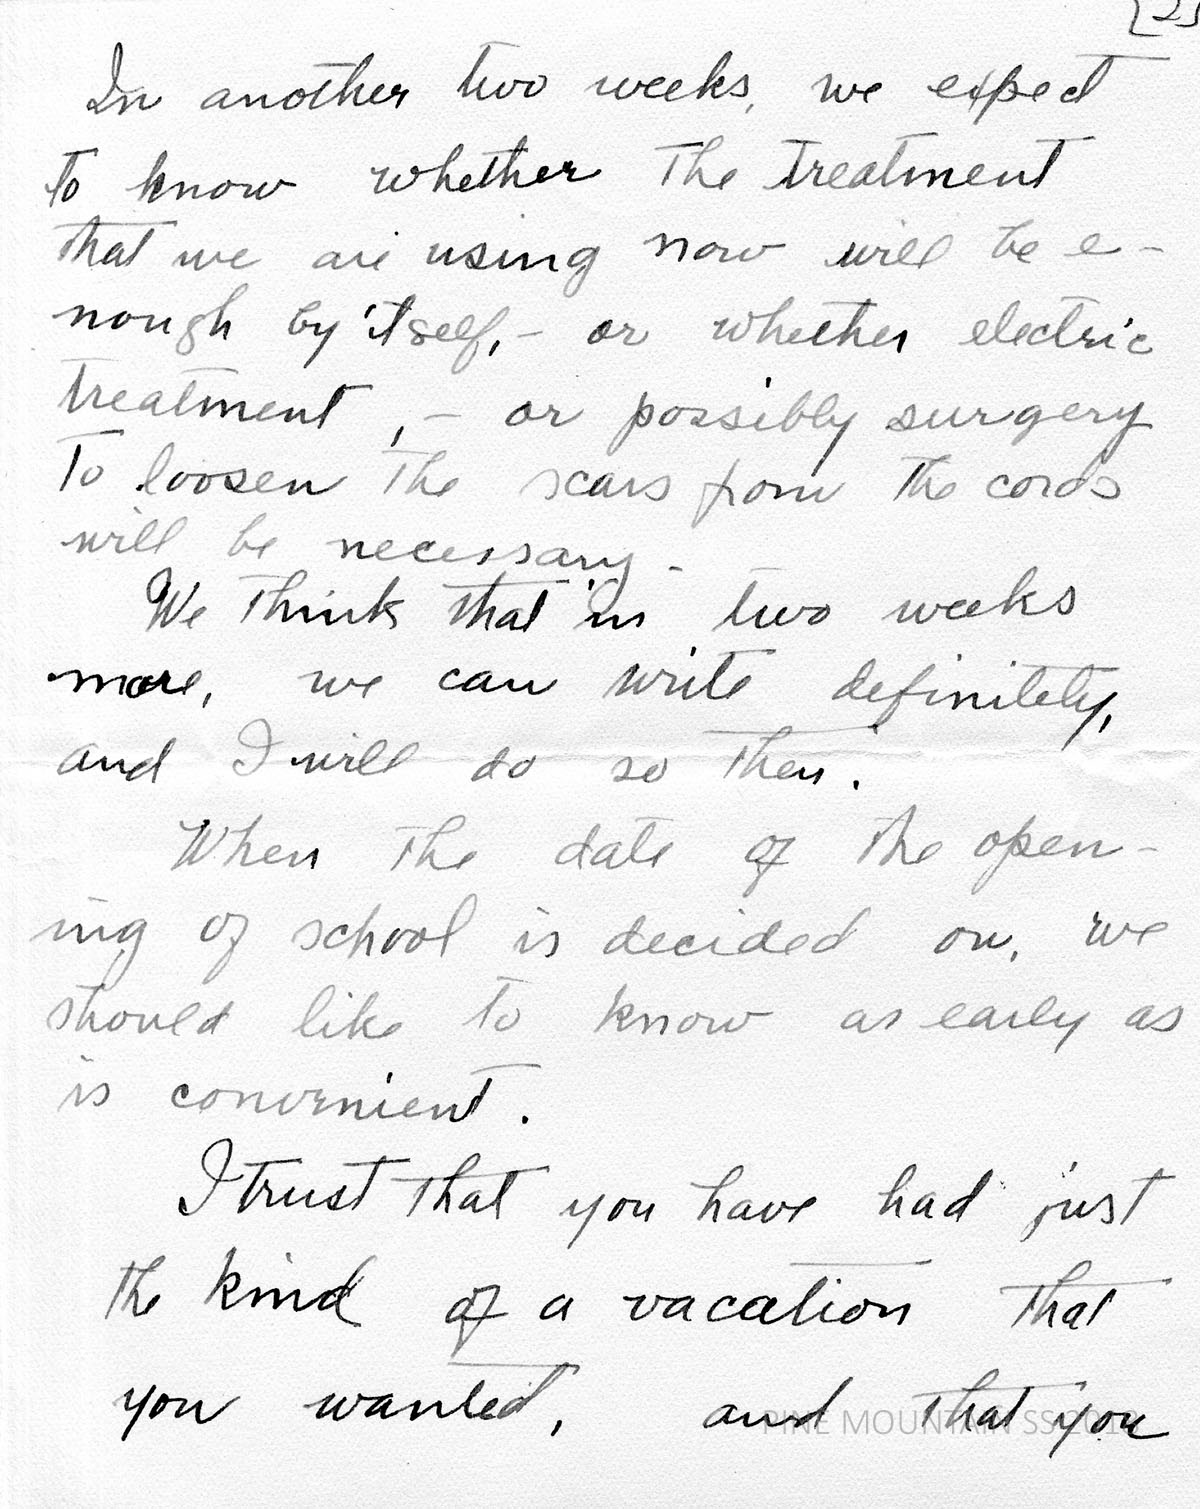 [2]
In another two weeks, we expect
to know whether the treatment
that we are using now will be e-
nough by itself, - or whether electric
treatment, - or possibly surgery
to loosen the scars from the cords
will be necessary.
We think that in two weeks
more, we can write definitely,
and I will do so then.
When the date of the open-
ing of school is decided on, we
should like to know as early as
is convenient.
I trust that you have had just
the kind of a vacation that
you wanted, and that you
PINE MOUNTAIN SS